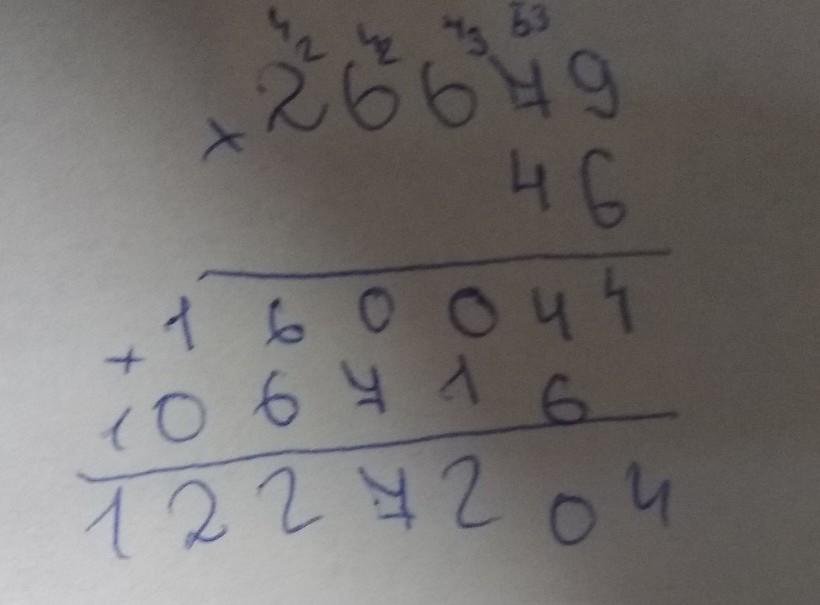 42 42 43 53
26679
× 46
160044
+
106716
1227204